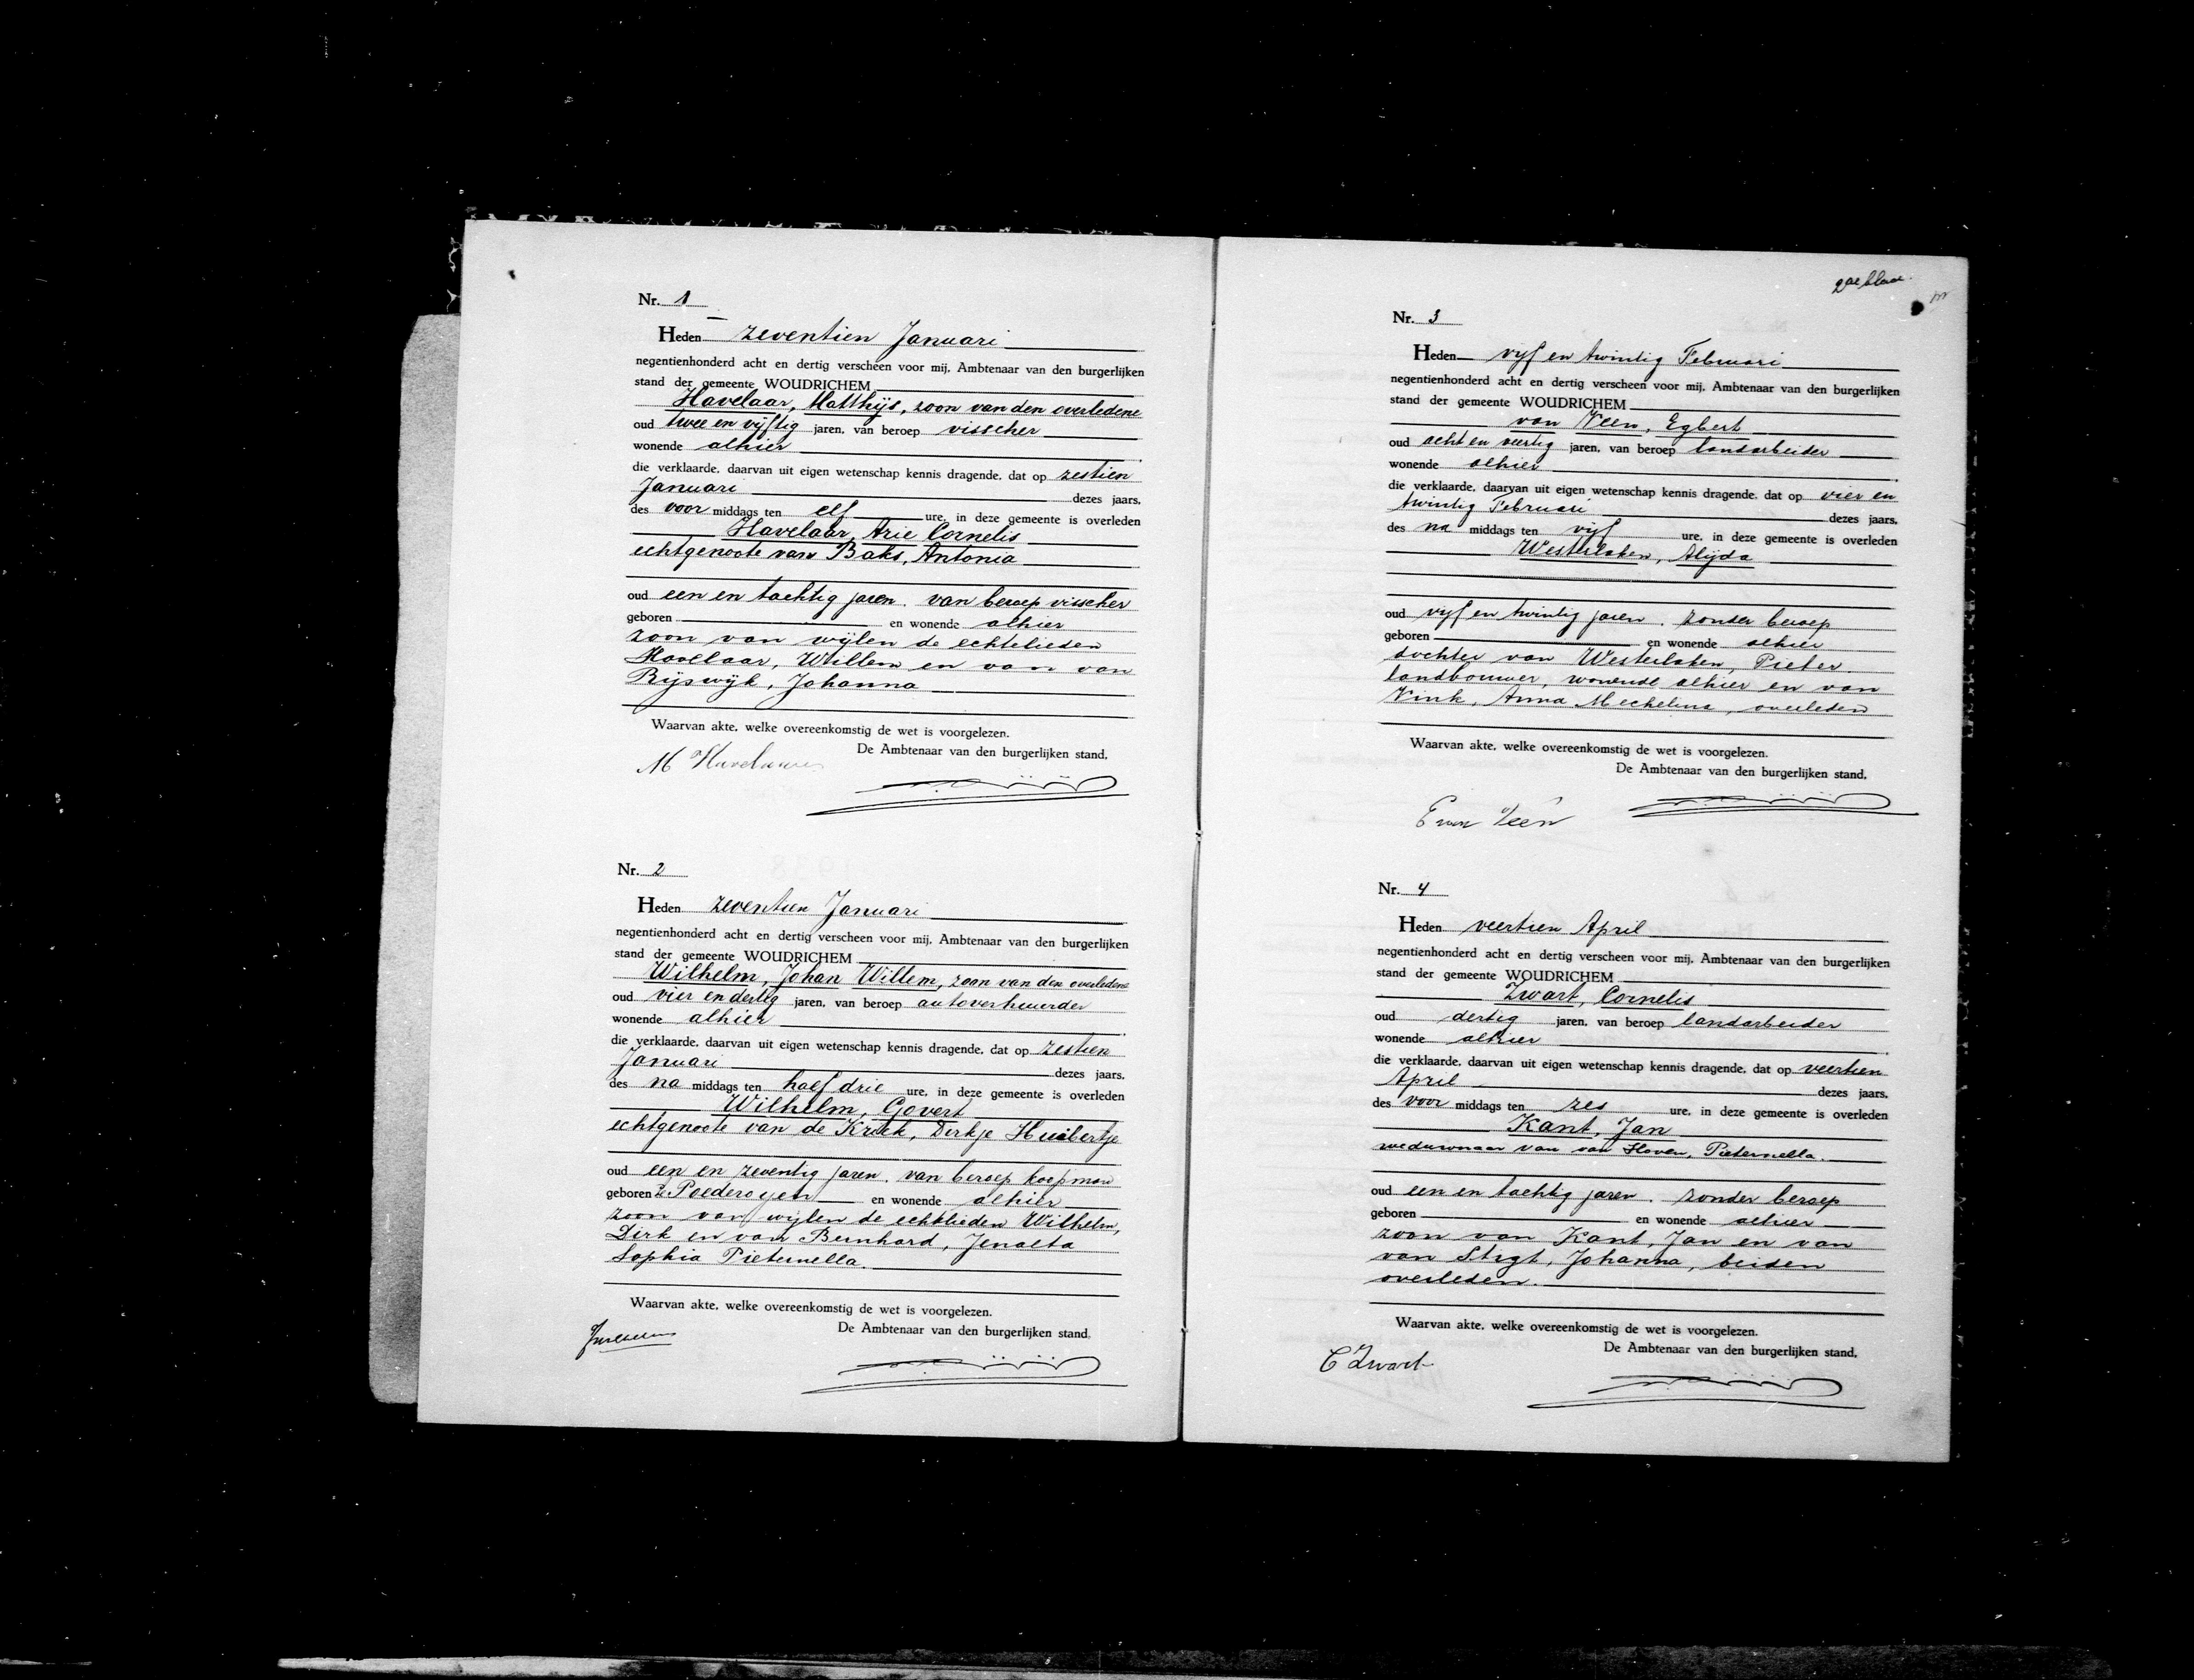 Nr. 1
Heden zeventien Januari
negentienhonderd acht en dertig verscheen voor mij, Ambtenaar van den burgerlijken
stand der gemeente WOUDRICHEM
Havelaar, Matthijs, zoon van den overledene
oud twee en vijftig jaren, van beroep visscher
wonende alhier
die verklaarde, daarvan uit eigen wetenschap kennis dragende, dat op zestien
Januari dezes jaars,
des voor middags ten elf ure, in deze gemeente is overleden
Havelaar, Arie Cornelis
echtgenoote van Baks, Antonia
oud een en tachtig jaren. van beroep visscher
geboren en wonende alhier
zoon van wijlen de echtelieden
Havelaar, Willem en van van
Rijswijk, Johanna
Waarvan akte, welke overeenkomstig de wet is voorgelezen.
De Ambtenaar van den burgerlijken stand,
M Havelaar
Nr. 2
Heden zeventien Januari
negentienhonderd acht en dertig verscheen voor mij, Ambtenaar van den burgerlijken
stand der gemeente WOUDRICHEM
Wilhelm, Johan Willem, zoon van den overledene
oud vier en dertig jaren, van beroep autoverhuurder
wonende alhier
die verklaarde, daarvan uit eigen wetenschap kennis dragende, dat op zestien
Januari dezes jaars,
des na middags ten half drie ure, in deze gemeente is overleden
Wilhelm, Govert
echtgenoote van de Kriek, Dirkje Huibertje
oud een en zeventig jaren. van beroep koopman
geboren te Poederoyen en wonende alhier
zoon van wijlen de echtlieden Wilhelm,
Dirk en van Bernhard, Jenaeta
Sophia Pieternella.
Waarvan akte, welke overeenkomstig de wet is voorgelezen.
De Ambtenaar van den burgerlijken stand,
2de blad.
Nr. 3
Heden vyf en twintig Februari
negentienhonderd acht en dertig verscheen voor mij, Ambtenaar van den burgerlijken
stand der gemeente WOUDRICHEM
van Veen, Egbert
oud acht en veertig jaren, van beroep landarbeider
wonende alhier
die verklaarde, daarvan uit eigen wetenschap kennis dragende, dat op vier en
twintig Februari dezes jaars,
des na middags ten vijf ure, in deze gemeente is overleden
Westerlaken, Alijda
oud vyf en twintig jaren. zonder beroep
geboren en wonende alhier
dochter van Westerlaken, Pieter
landbouwer, wonende alhier en van
Vink, Anna Mechelina, overleden
Waarvan akte, welke overeenkomstig de wet is voorgelezen.
De Ambtenaar van den burgerlijken stand,
E van Veen
Nr. 4
Heden veertien April
negentienhonderd acht en dertig verscheen voor mij, Ambtenaar van den burgerlijken
stand der gemeente WOUDRICHEM
Zwart, Cornelis
oud dertig jaren, van beroep landarbeider
wonende alhier
die verklaarde, daarvan uit eigen wetenschap kennis dragende, dat op veertien
April dezes jaars,
des voor middags ten zes ure, in deze gemeente is overleden
Kant, Jan
weduwnaar van van Hoven, Pieternella.
oud een en tachtig jaren. zonder beroep
geboren en wonende alhier
zoon van Kant, Jan en van
van Strgt, Johanna, beiden
overleden.
Waarvan akte, welke overeenkomstig de wet is voorgelezen.
De Ambtenaar van den burgerlijken stand,
C Zwart